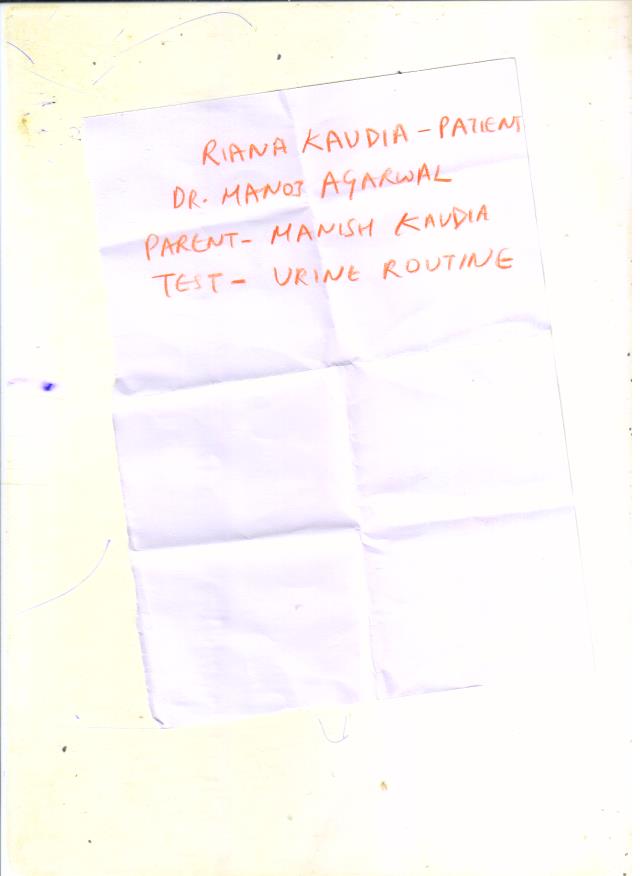 RIANA KAUDIA - PATIENT
DR. MANOJ AGARWAL
PARENT - MANISH KAUDIA
TEST - URINE ROUTINE